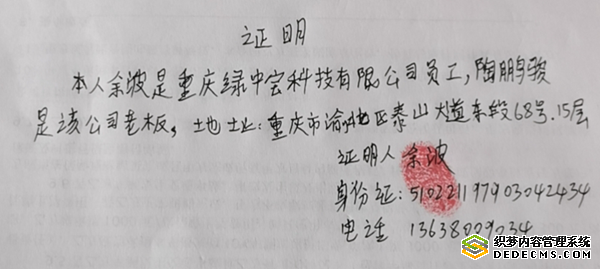 证明
本人余波是重庆绿中宏科技有限公司员工,陶鹏骏
是该公司老板。地址:重庆市渝北区泰山大道东段68号.15层
证明人余波
身份证:510221197903042434
电话 13638009034
织梦内容管理系统
DEDECMS.COM